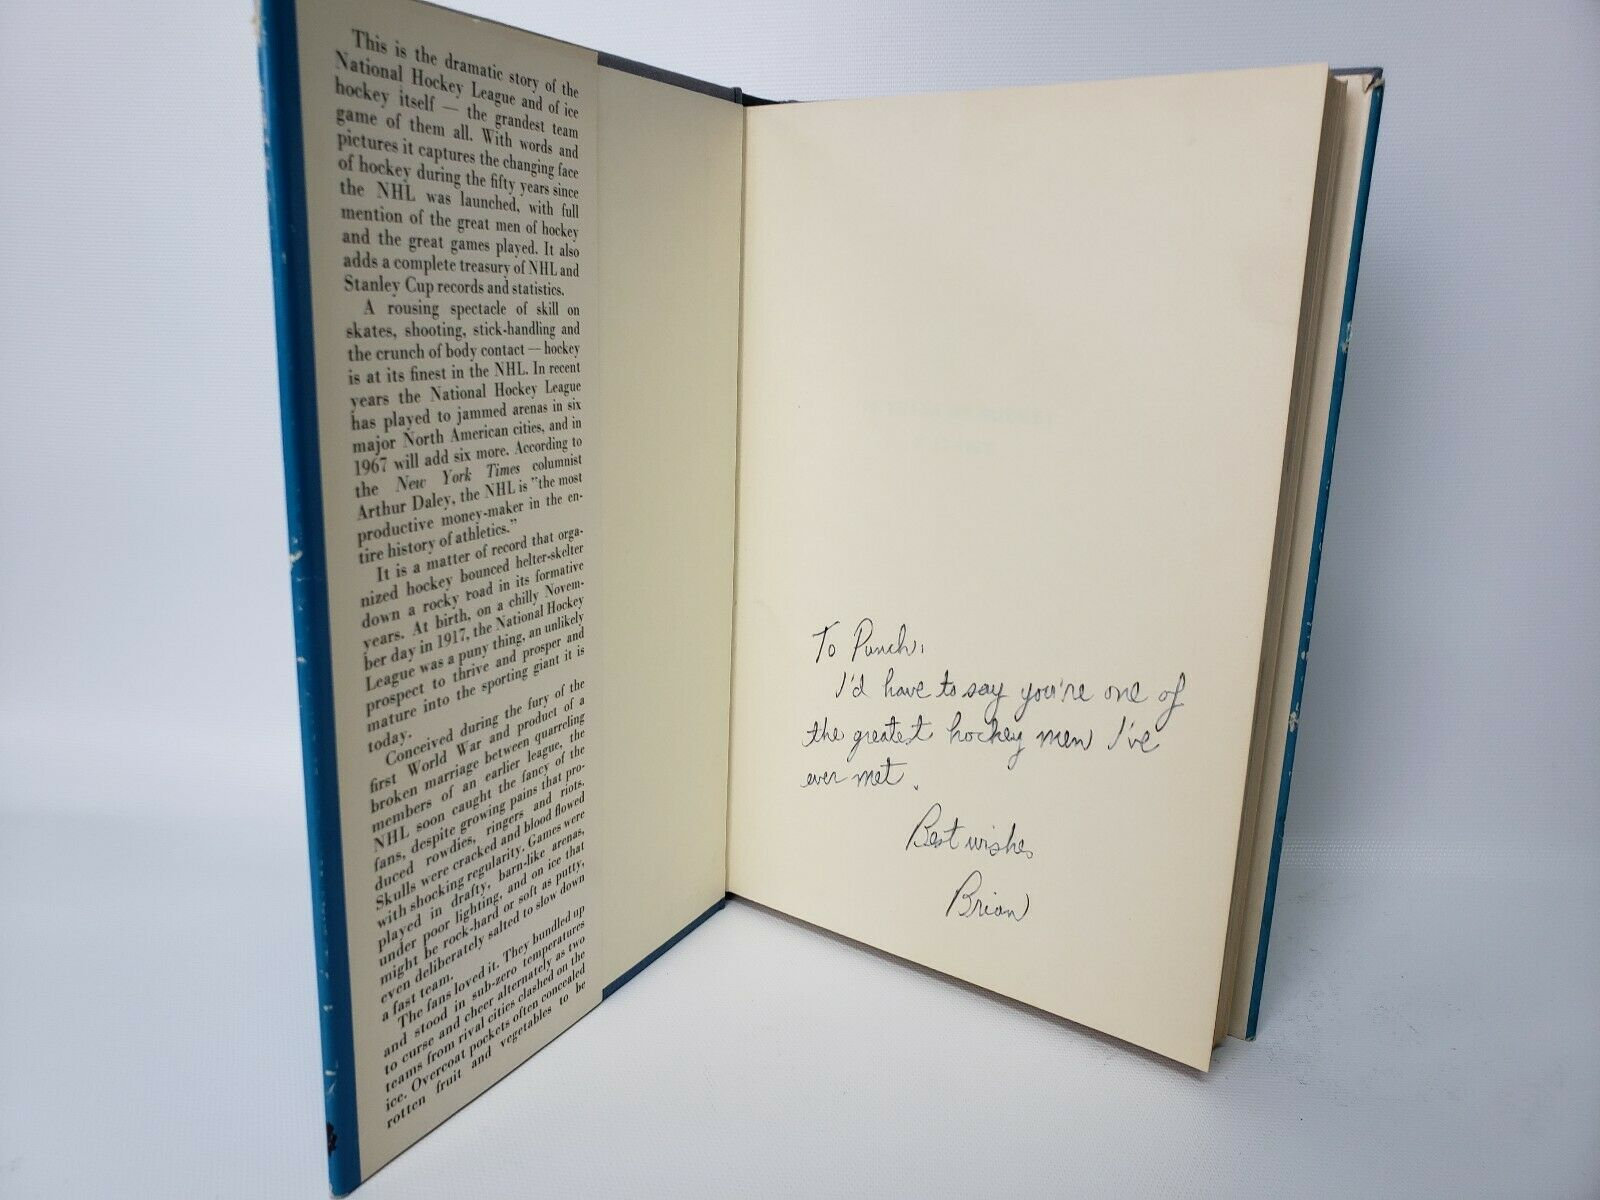 This is the dramatic story of the
National Hockey League and of ice
hockey itself — the grandest team
game of them all. With words and
pictures it captures the changing face
of hockey during the fifty years since
the NHL was launched, with full
mention of the great men of hockey
and the great games played. It also
adds a complete treasury of NHL and
Stanley Cup records and statistics.
A rousing spectacle of skill on
skates, shooting, stick-handling and
the crunch of body contact — hockey
is at its finest in the NHL. In recent
years the National Hockey League
has played to jammed arenas in six
major North American cities, and in
1967 will add six more. According to
the New York Times columnist
Arthur Daley, the NHL is "the most
productive money-maker in the en-
tire history of athletics."
It is a matter of record that orga-
nized hockey bounced helter-skelter
down a rocky road in its formative
years. At birth, on a chilly Novem-
ber day in 1917, the National Hockey
League was a puny thing, an unlikely
prospect to thrive and prosper and
mature into the sporting giant it is
today.
Conceived during the fury of the
first World War and product of a
broken marriage between quarreling
members of an earlier league, the
NHL soon caught the fancy of the
fans, despite growing pains that pro-
duced rowdies, ringers and riots.
Skulls were cracked and blood flowed
with shocking regularity. Games were
played in drafty, barn-like arenas,
under poor lighting, and on ice that
might be rock-hard or soft as putty,
even deliberately salted to slow down
a fast team.
The fans loved it. They bundled up
and stood in sub-zero temperatures
to curse and cheer alternately as two
teams from rival cities clashed on the
ice. Overcoat pockets often concealed
rotten fruit and vegetables to be
To Punch,
I'd have to say you're one of
the greatest hockey men I've
ever met.
Best wishes
Brian